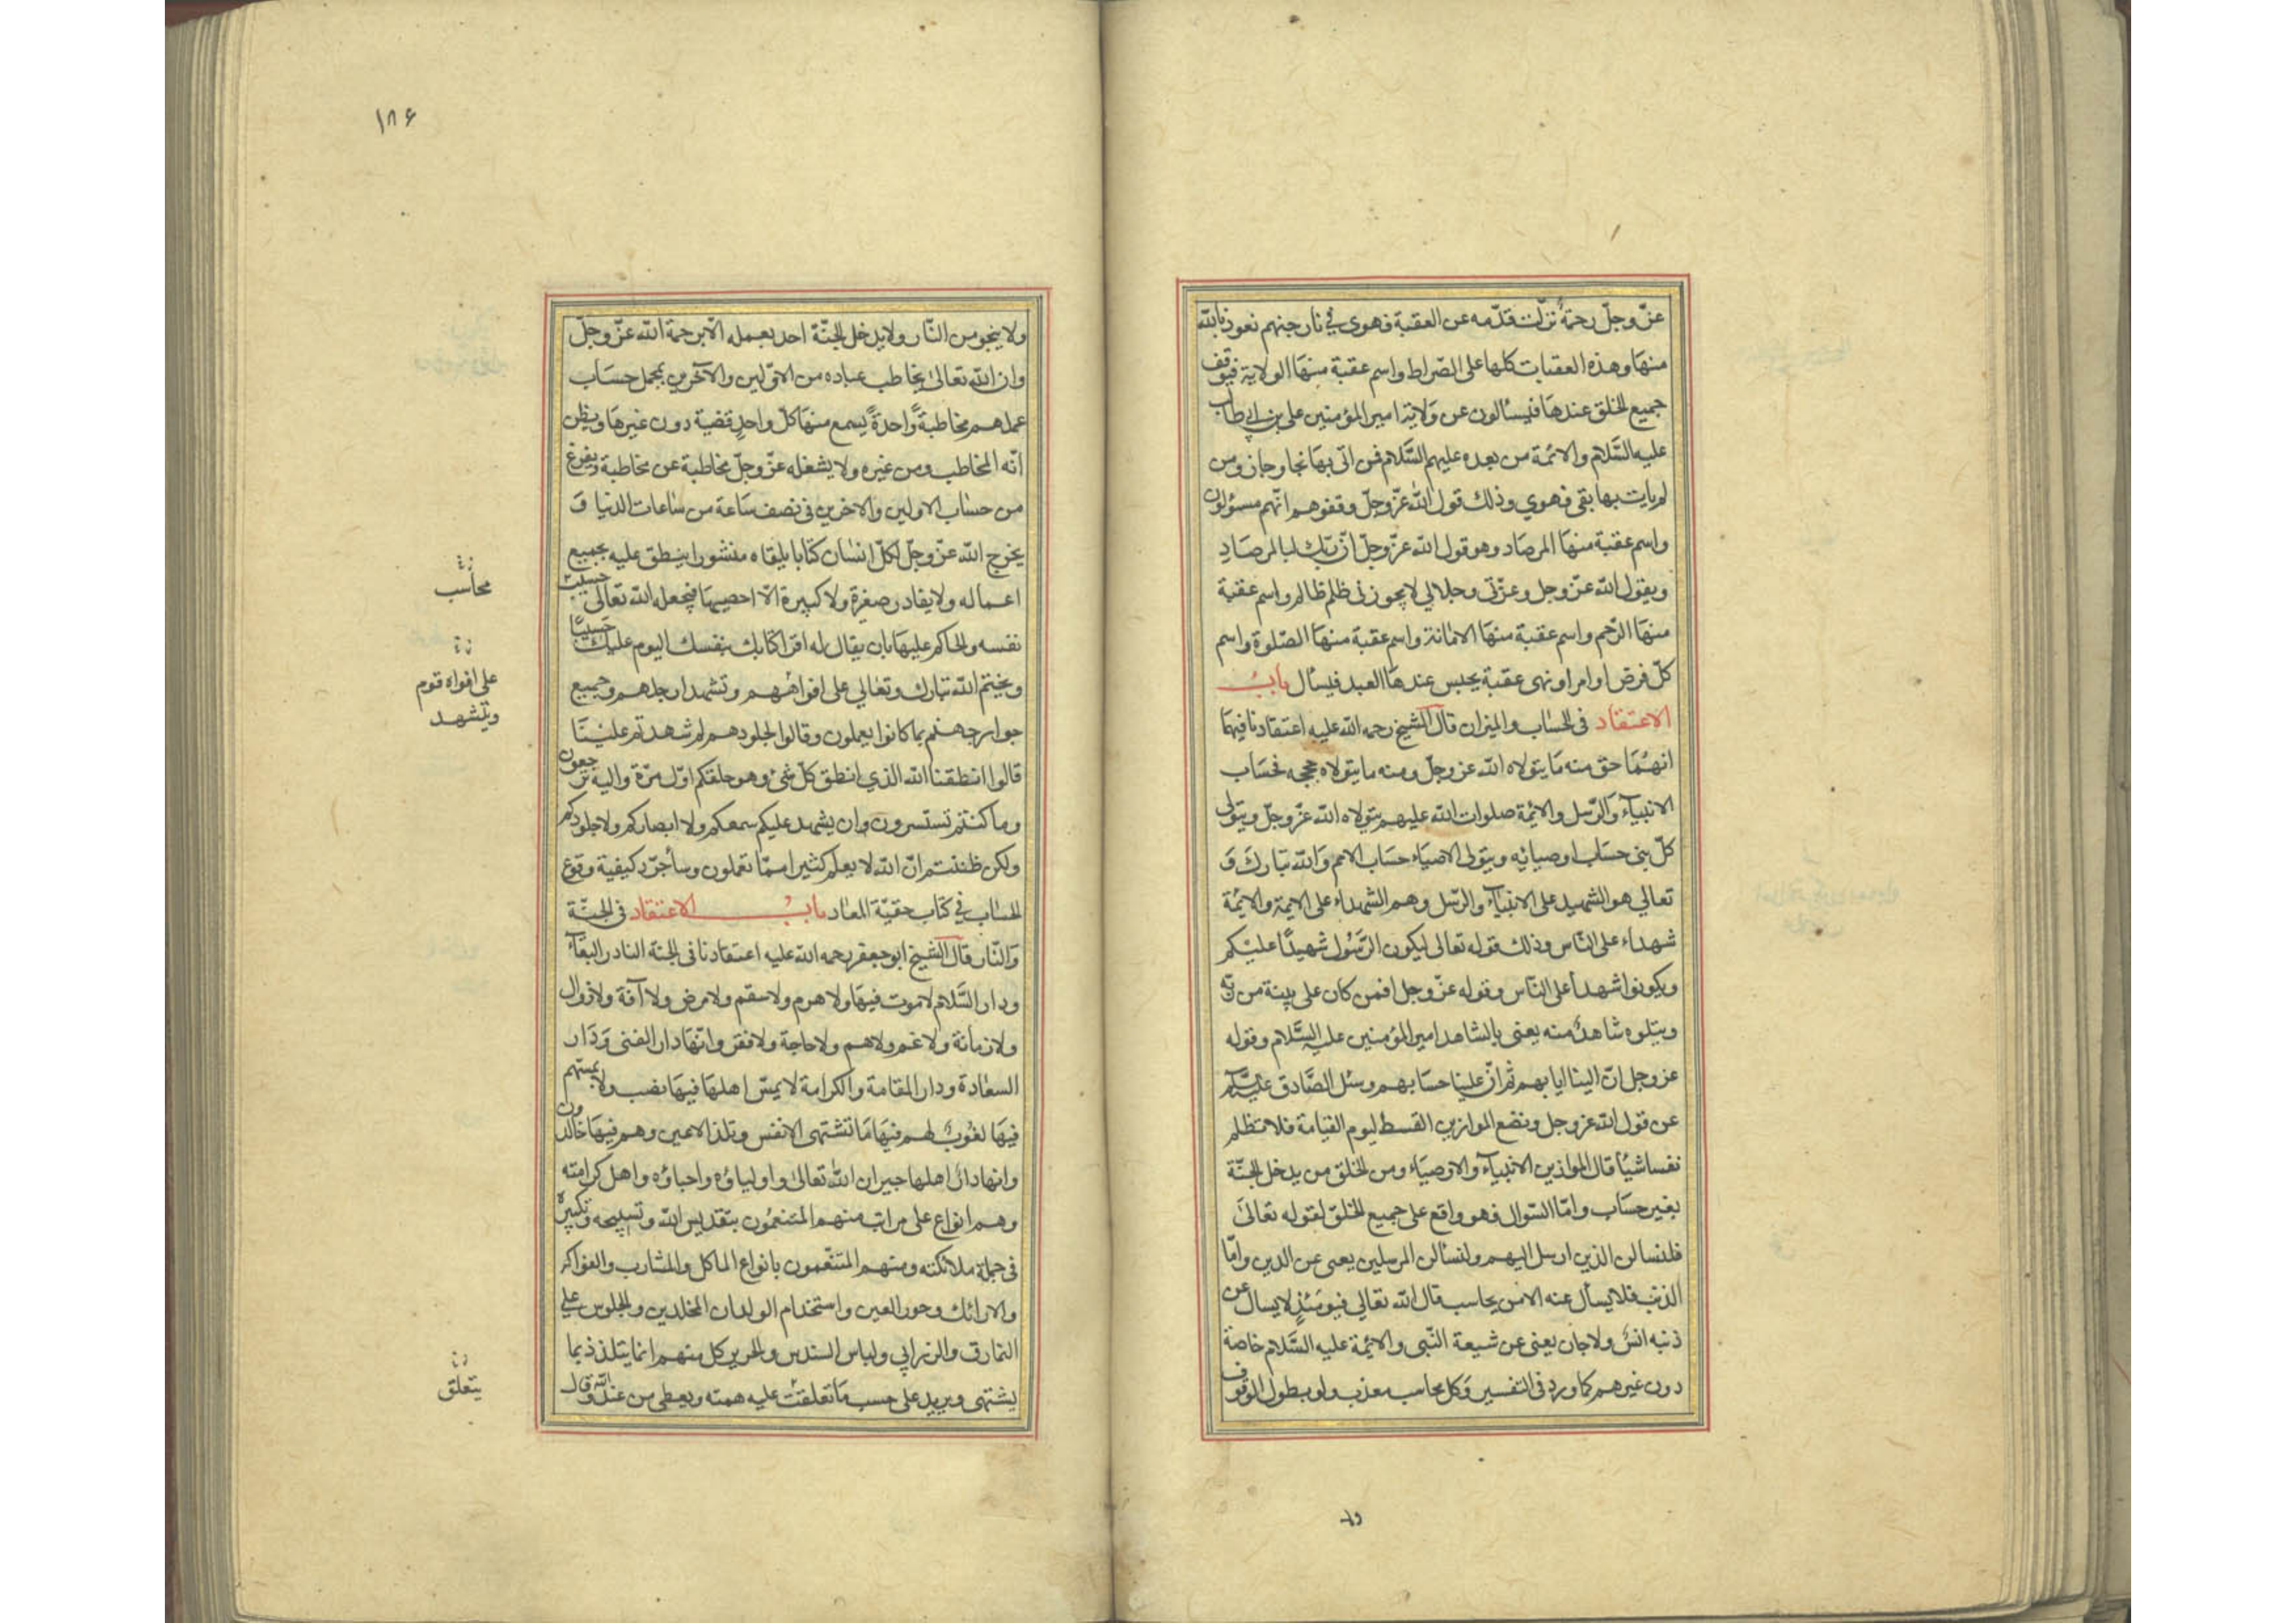 عزّ وجلّ رحمةٌ نزلت قدّمه عن العقبة فهوى في نار جهنم نعوذ بالله
منها وهذه العقبات كلها على الصّراط واسم عقبة منها الولاية فيوقف
جميع الخلق عندها فيسئالون عن ولاية امير المؤمنين على بن ابي طالب
عليه السَّلام والائمة من بعده عليهم السَّلام فمن اتى بها نجا وجاز ومن
لم يات بها بقى فهوي وذلك قول الله عزّ وجلّ وقفوهم انّهم مسؤلون
واسم عقبة منها المرصاد وهو قول الله عزّ وجلّ انّ ربّك لبالمرصادِ
ويقول الله عزّ وجل وعزّتى وجلالي لا يجوزنى ظلم ظالم واسم عقبة
منها الرّحم واسم عقبة منها الامانة واسم عقبة منها الصّلوة واسم
كلّ فرض او امر او نهى عقبة يحبس عندها العبد فيسأل بابُ
الاعتقاد فى الحساب والميزان قال الشيخ رحمه الله عليه اعتقادنا فيهما
انهُمَا حق منه مَا يتولاه الله عز وجلّ ومنه ما يتولاه حججه فحسَاب
الانبياءَ وَالرّسل والائمة صلوات الله عليهم يتولاه الله عزّ وجلّ ويتولى
كلّ نبي حسَاب اوصيائه ويتولى الاصياء حسَاب الامم وَالله تبارك وَ
تعالي هو الشهيد على الانبيَاءَ والرّسل وهم الشهداء على الايمة والايمة
شهداء على النّاس وذلك قوله تعالى ليكون الرّسُول شهيدًا عليْكم
ويكونوا شهدآ على النّاس وقوله عزّ وجل افمن كان على بينة من ربّه
ويتلوه شاهدٌ منه يعنى بالشاهد امير المؤمنين عليه السَّلام وقوله
عز وجل انّ الينا ايابهم ثم انّ علينا حسَابهم وسئل الصَّادق عليه السَّلم
عن قول الله عز وجل ونضع الموازين القسط ليوم القيامة فلا تظلم
نفسا شيًا قال الموازين الانبيآء والاوصيَاء ومن الخلق من يدخل الجنّة
بغير حسَاب وامّا السّوال فهو واقع على جميع الخلق لقوله تعالىَ
فلنسالن الذين ارسل اليهم ولنسالن المرسلين يعنى عن الدين وامّا
الذنب فلا يسأل عنه الا من يحاسب قال الله تعالي فيومئذٍ لا يسال عن
ذنبه انسٌ ولا جان يعنى عن شيعة النّبى والايمة عليه السَّلام خاصّة
دون غيرهم كما ورد فى التفسير وَكل محاسب معذب ولو بطول الوقوف
ولا
۱۸۶
ولا ينجو من النّار ولا يدخل الجنّة احد بعمله الّا برحمة الله عزّ وجلّ
وان الله تعالىٰ يخاطب عباده من الاوّلين والآخرين بمجمل حسَاب
عملهم مخاطبةً واحدةً يسمع منها كلّ واحدٍ قضية دون غيرها ويظن
انّه المخاطب ومن غيره ولا يشغله عزّ وجلّ مخاطبة عن مخاطبة ويفرغ
من حسٰاب الاولين والاخرين فى نصف سَاعة من سٰاعات الدّنيا وَ
يخرج الله عزّ وجلّ لكلّ انسٰان كتابا يلقاه منشورا ينطق عليه بجميع
اعماله ولا يغادر صغرة ولا كبيرة الّا احصيها فيجعله الله تعالى حسيب
محاسب
نفسه والحاكم عليها بان يقال له اقرا كتابك بنفسك اليوم عليك حَسيبًا
ويختم الله تبارك وتعالي على افواههم وتشهد ارجلهم وجميع
على افواه قوم
ويتشهد
جوارحهم بما كانوا يعملون وقالوا لجلودهم لم شهدتم عليْنَا
قالوا انطقنا الله الذي انطق كلّ شئ وهو خلقكم اوّل مرّة واليه ترجعون
وما كنتم تستسرون وان يشهد عليكم سمعكم ولا ابصاركم ولا جلودكم
ولكن ظننتم انّ الله لا يعلم كثيرا ممّا تعملون وسأجرّد كيفية وقوع
الحسٰاب في كتاب حقيّة المعٰاد بابُ الاعتقاد فى الجنّة
وَالنّار قال الشيخ ابو جعفر رحمه الله عليه اعتقادنا فى الجنة النادر البقآء
ودار السَّلام لا موت فيها ولا هرم ولا سقم ولا مرض ولا آفة ولا زوال
ولا زمانة ولا غم ولا هم ولا حاجة ولا فقر وانّها دار الغنى وَدَار
السعٰادة ودار المقامة والكرامة لا يمسّ اهلها فيها نصب ولا يمسّهم
فيها لغوبٌ لهم فيها مَا تشتهى الانفس وتلذ الاعين وهم فيها خالدون
وانها دارٌ اهلها جيران الله تعالىٰ واولياؤه واحباؤه واهل كرامته
وهم انواع على مراتب منهم المتنعمُون بتقديس الله وتسبيحه وتكبيره
فى جملة ملائكته ومنهم المتنّعمون بانواع الماكل والمشارب والفواكه
والارائك وحور العين واستخدام الولدان المخلدين والجلوس على
النمارق والزرابي ولباس السندس والحرير كل منهم انما يتلذذ بما
يشتهى ويريد على حسب مَا تعلقت عليه همته ويعطى من عند الله وقال
يتعلق